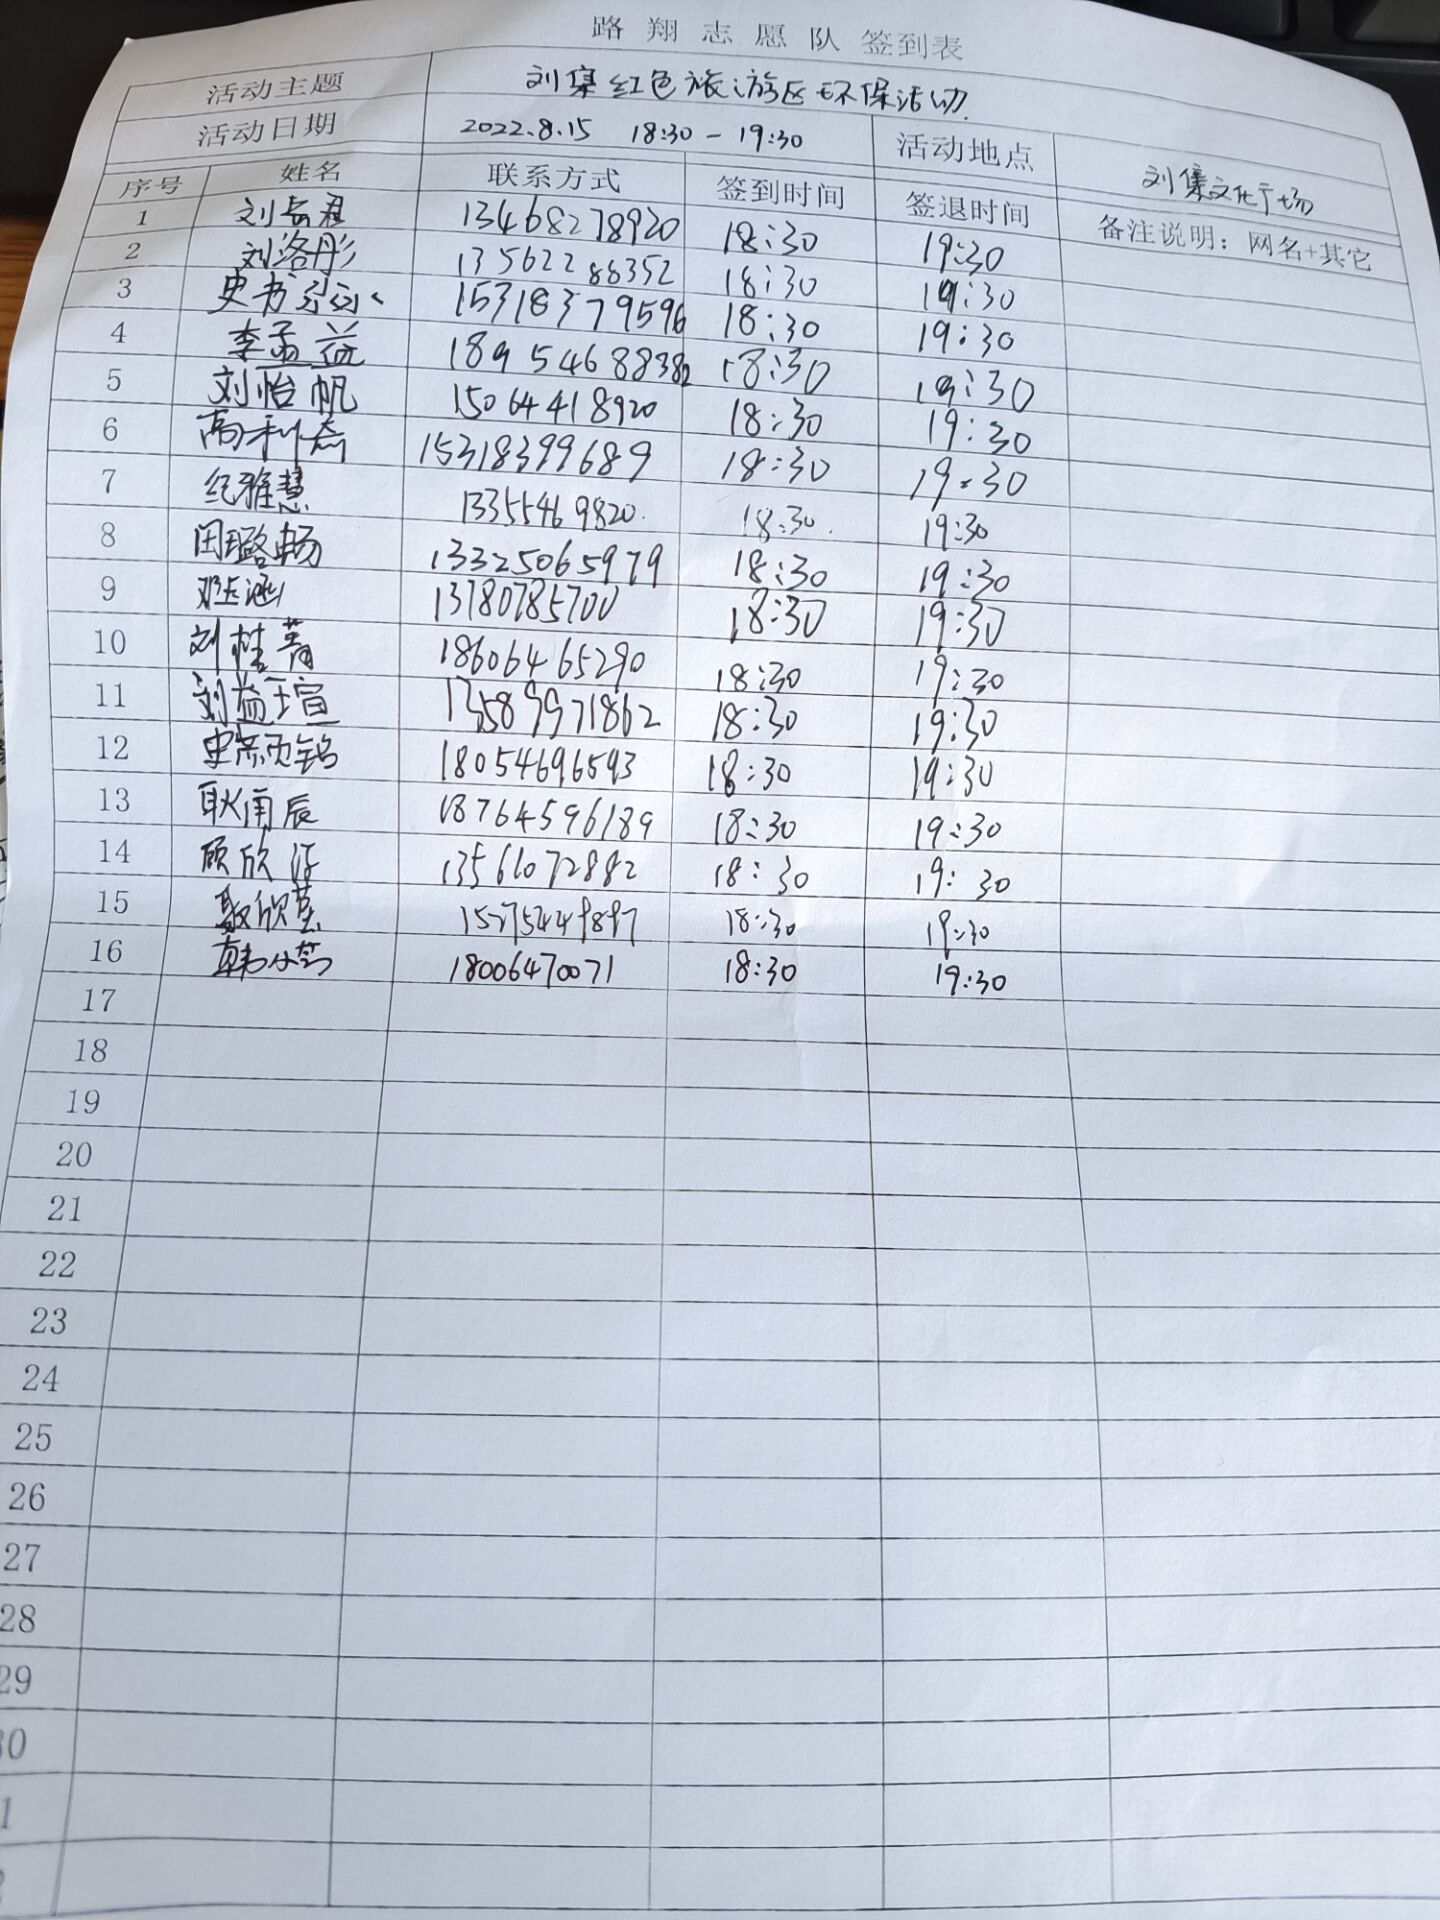 路翔志愿队 签到表
活动主题 刘集红色旅游区环保活动.
活动日期 2022.8.15 18:30-19:30 活动地点 刘集文化广场
序号 姓名 联系方式 签到时间 签退时间 备注说明：网名+其它
1 刘 13468278920 18:30 19:30
2 刘洛彤 13562288352 18:30 19:30
3 史书 15318379596 18:30 19:30
4 李孟益 18954688382 18:30 19:30
5 刘怡帆 15064418920 18:30 19:30
6 高利 15318399689 18:30 19:30
7 纪雅慧 13355469820. 18:30. 19:30
8 田璐畅 13325065979 18:30 19:30
9 13780785700 18:30 19:30
10 刘桂菁 18606465290 18:30 19:30
11 刘益瑄 13589971862 18:30 19:30
12 史 18054696593 18:30 19:30
13 耿南辰 18764596189 18:30 19:30
14 顾欣 13561072882 18:30 19:30
15 欣 18:30 19:30
16 韩 18006470071 18:30 19:30
17
18
19
20
21
22
23
24
25
26
27
28
29